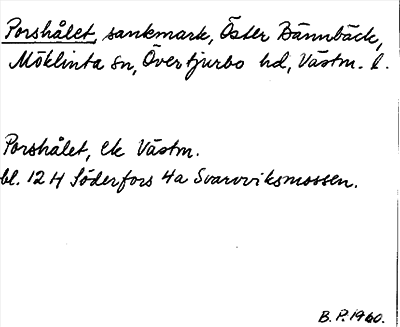 Porshålet, sankmark, Öster Bännbäck,
Möklinta sn, Övertjurbo hd, Västm. l.
Porshålet, ek Västm.
bl. 12 H Söderfors 4a Svarvviksmossen.
B. P. 1960.